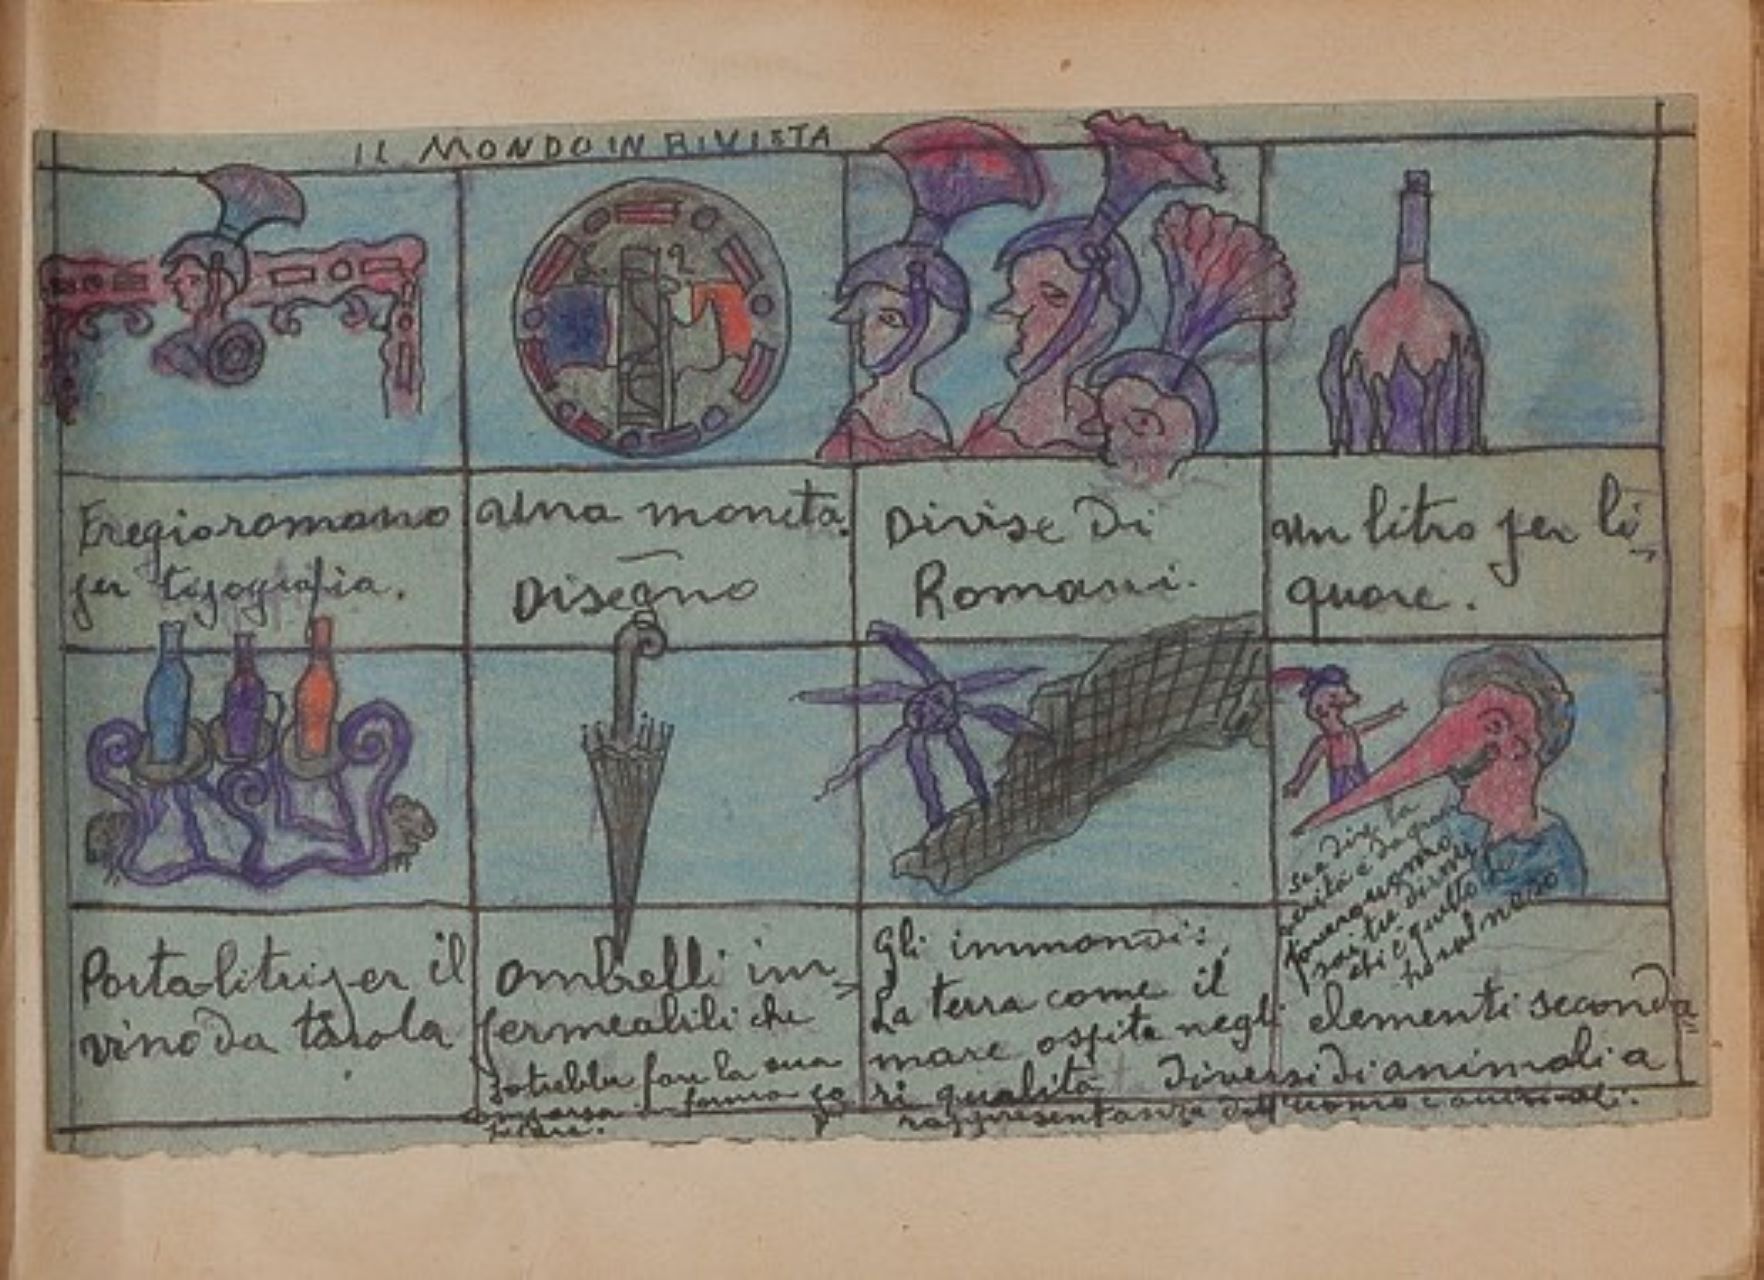 IL MONDO IN RIVISTA
Fregio romano
per tipografia.
Una moneta.
Disegno
Divise Di
Romani.
Un litro per li-
quore.
Porta-litri per il
vino da tavola
Ombrelli im-
permeabili che
potrebbe fare la sua
comparsa in forma
Gli immondi:
La terra come il
mare ospita negli elementi seconda
ri qualità diversi di animali a
rappresentanza dell'uomo e animali.
verità è
quello che
ha sul naso